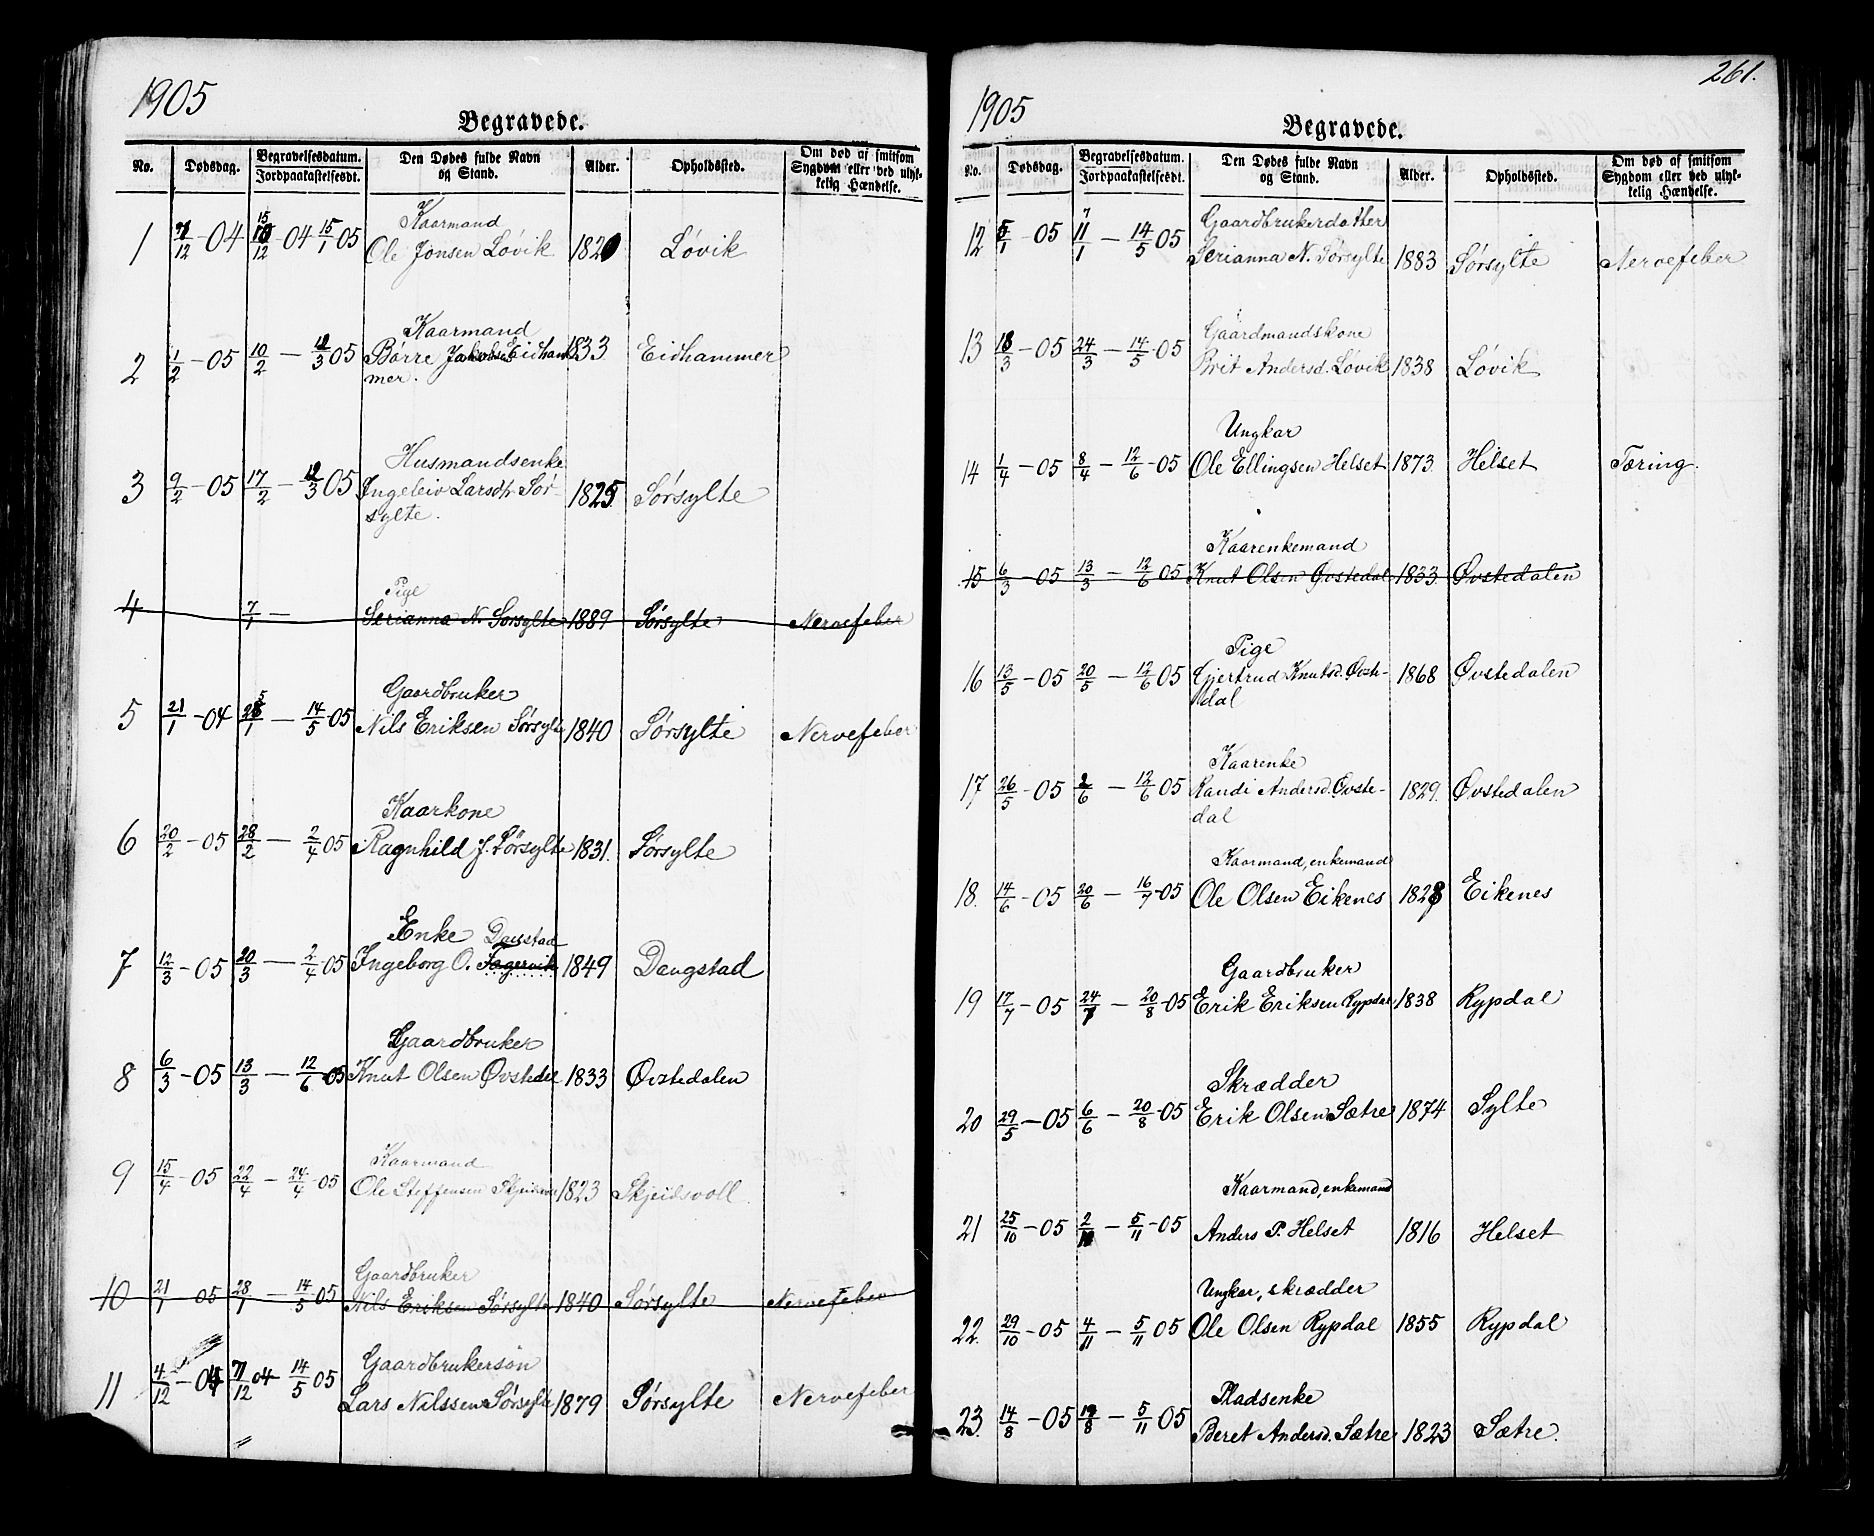 1905
Begravede.
No. Dødsdag. Begravelsesdatum. Jordpaakastelsesdt. Den Dødes fulde Navn og Stand. Alder. Opholdssted. Om død af smitsom Sygdom eller ved ulykkelig Hændelse.
Kaarmand
1 /12 - 04 15/12 04 15/1 05 Ole Jonsen Løvik 1820 Løvik
Kaarmand
2 1/2 - 05 10/2 - 12/3 05 Børre Jakobsen Eidham 1833 Eidhammer
mer.
Husmandsenke
3 9/2 - 05 17/2 - 12/3 05 Ingeleiv Larsdtr Sør- 1825. Sørsylte
sylte.
Pige
4 7/1 - Serianna N. Sørsylte 1889 Sørsylte Nervefeber
Gaardbruker
5 21/1 - 04 28/1 - 14/5 05 Nils Eriksen Sørsylte 1840 Sørsylte Nervefeber
Kaarkone
6 20/2 - 05 28/2 - 2/4 05 Ragnhild J. Sørsylte 1831. Sørsylte
Enke Daugstad
7 12/3 - 05 20/3 - 2/4 05 Ingeborg O. Fagervik 1849 Daugstad
Gaardbruker
8 6/3 - 05 13/3 - 12/6 05 Knut Olsen Øvstedal 1833 Øvstedalen
Kaarmand
9 15/4 - 05 22/4 - 24/4 - 05 Ole Steffensen 1823 Skjeidsvoll
Gaardbruker
10 21/1 05 28/1 - 14/5 05 Nils Eriksen Sørsylte 1840 Sørsylte Nervefeber
Gaardbrukersøn
11 4/12 - 04 /12 04 14/5 05 Lars Nilssen Sørsylte 1879 Sørsylte Nervefeber
261.
1905
Begravede.
No. Dødsdag. Begravelsesdatum. Jordpaakastelsesdt. Den Dødes fulde Navn og Stand. Alder. Opholdssted. Om død af smitsom Sygdom eller ved ulykkelig Hændelse.
Gaardbrukerdatter
12 /1 - 05 11/1 - 14/5 05 Serianna N. Sørsylte 1883 Sørsylte Nervefeber
Gaardmandskone
13 18/3 - 05 24/3 - 14/5 - 05 Brit Andersd. Løvik 1838 Løvik
Ungkar
14 1/4 - 05 8/4 - 12/6 - 05 Ole Ellingsen Helset 1873. Helset Tæring.
Kaarenkemand
15 6/3 - 05 13/3 - 12/6 05 Knut Olsen Øvstedal 1833 Øvstedalen
Pige
16 13/5 - 05 20/5 - 12/6 05 Gjertrud Knutsd. Øvste- 1868 Øvstedalen
dal
Kaarenke
17 26/5 - 05 2/6 - 12/6 05 Randi Andersd. Øvste- 1829. Øvstedalen
dal
Kaarmand, enkemand
18. 14/6 - 05 20/6 - 16/7 - 05 Ole Olsen Eikenes 1828 Eikenes
Gaardbruker
19 17/7 - 05 24/7 - 20/8 - 05 Erik Eriksen Rypdal 1838 Rypdal
Skrædder
20 29/5 - 05 6/6 - 20/8 - 05 Erik Olsen Sætre 1874 Sylte
Kaarmand, enkemand
21 25/10 - 05 2/11 - 5/11 - 05 Anders P. Helset 1816 Helset
Ungkar, skrædder
22. 29/10 - 05 4/11 - 5/11 05 Ole Olsen Rypdal 1855 Rypdal
Pladsenke
23. 14/8 - 05 19/8 - 5/11 05 Beret Andersd. Sætre 1823 Sætre.